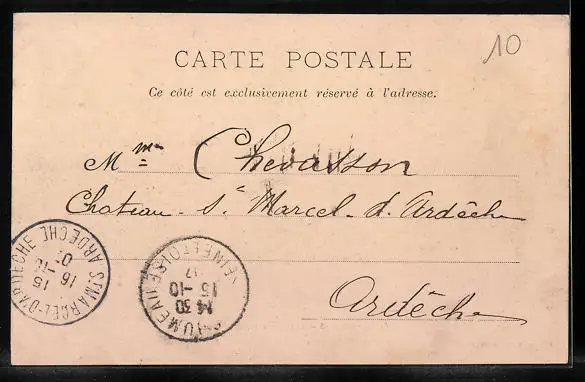 10
CARTE POSTALE
Ce côté est exclusivement réservé à l'adresse.
M me Chevasson
Chateau St Marcel d'Ardèche
Ardèche
ST MARCEL-D'ARDÈCHE
ARDECHE
15
16-10
SEINE ET OISE
15-10